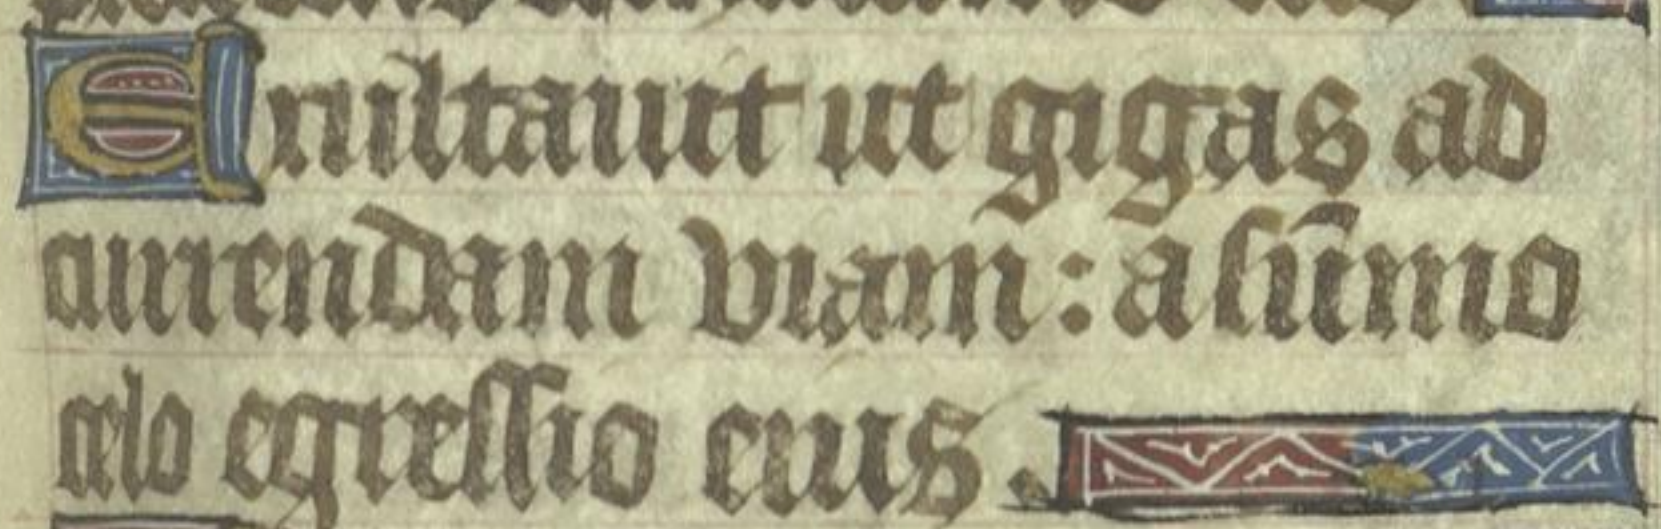 Exultauit ut gigas ad
currendam viam : a sūmo
celo egressio eius .